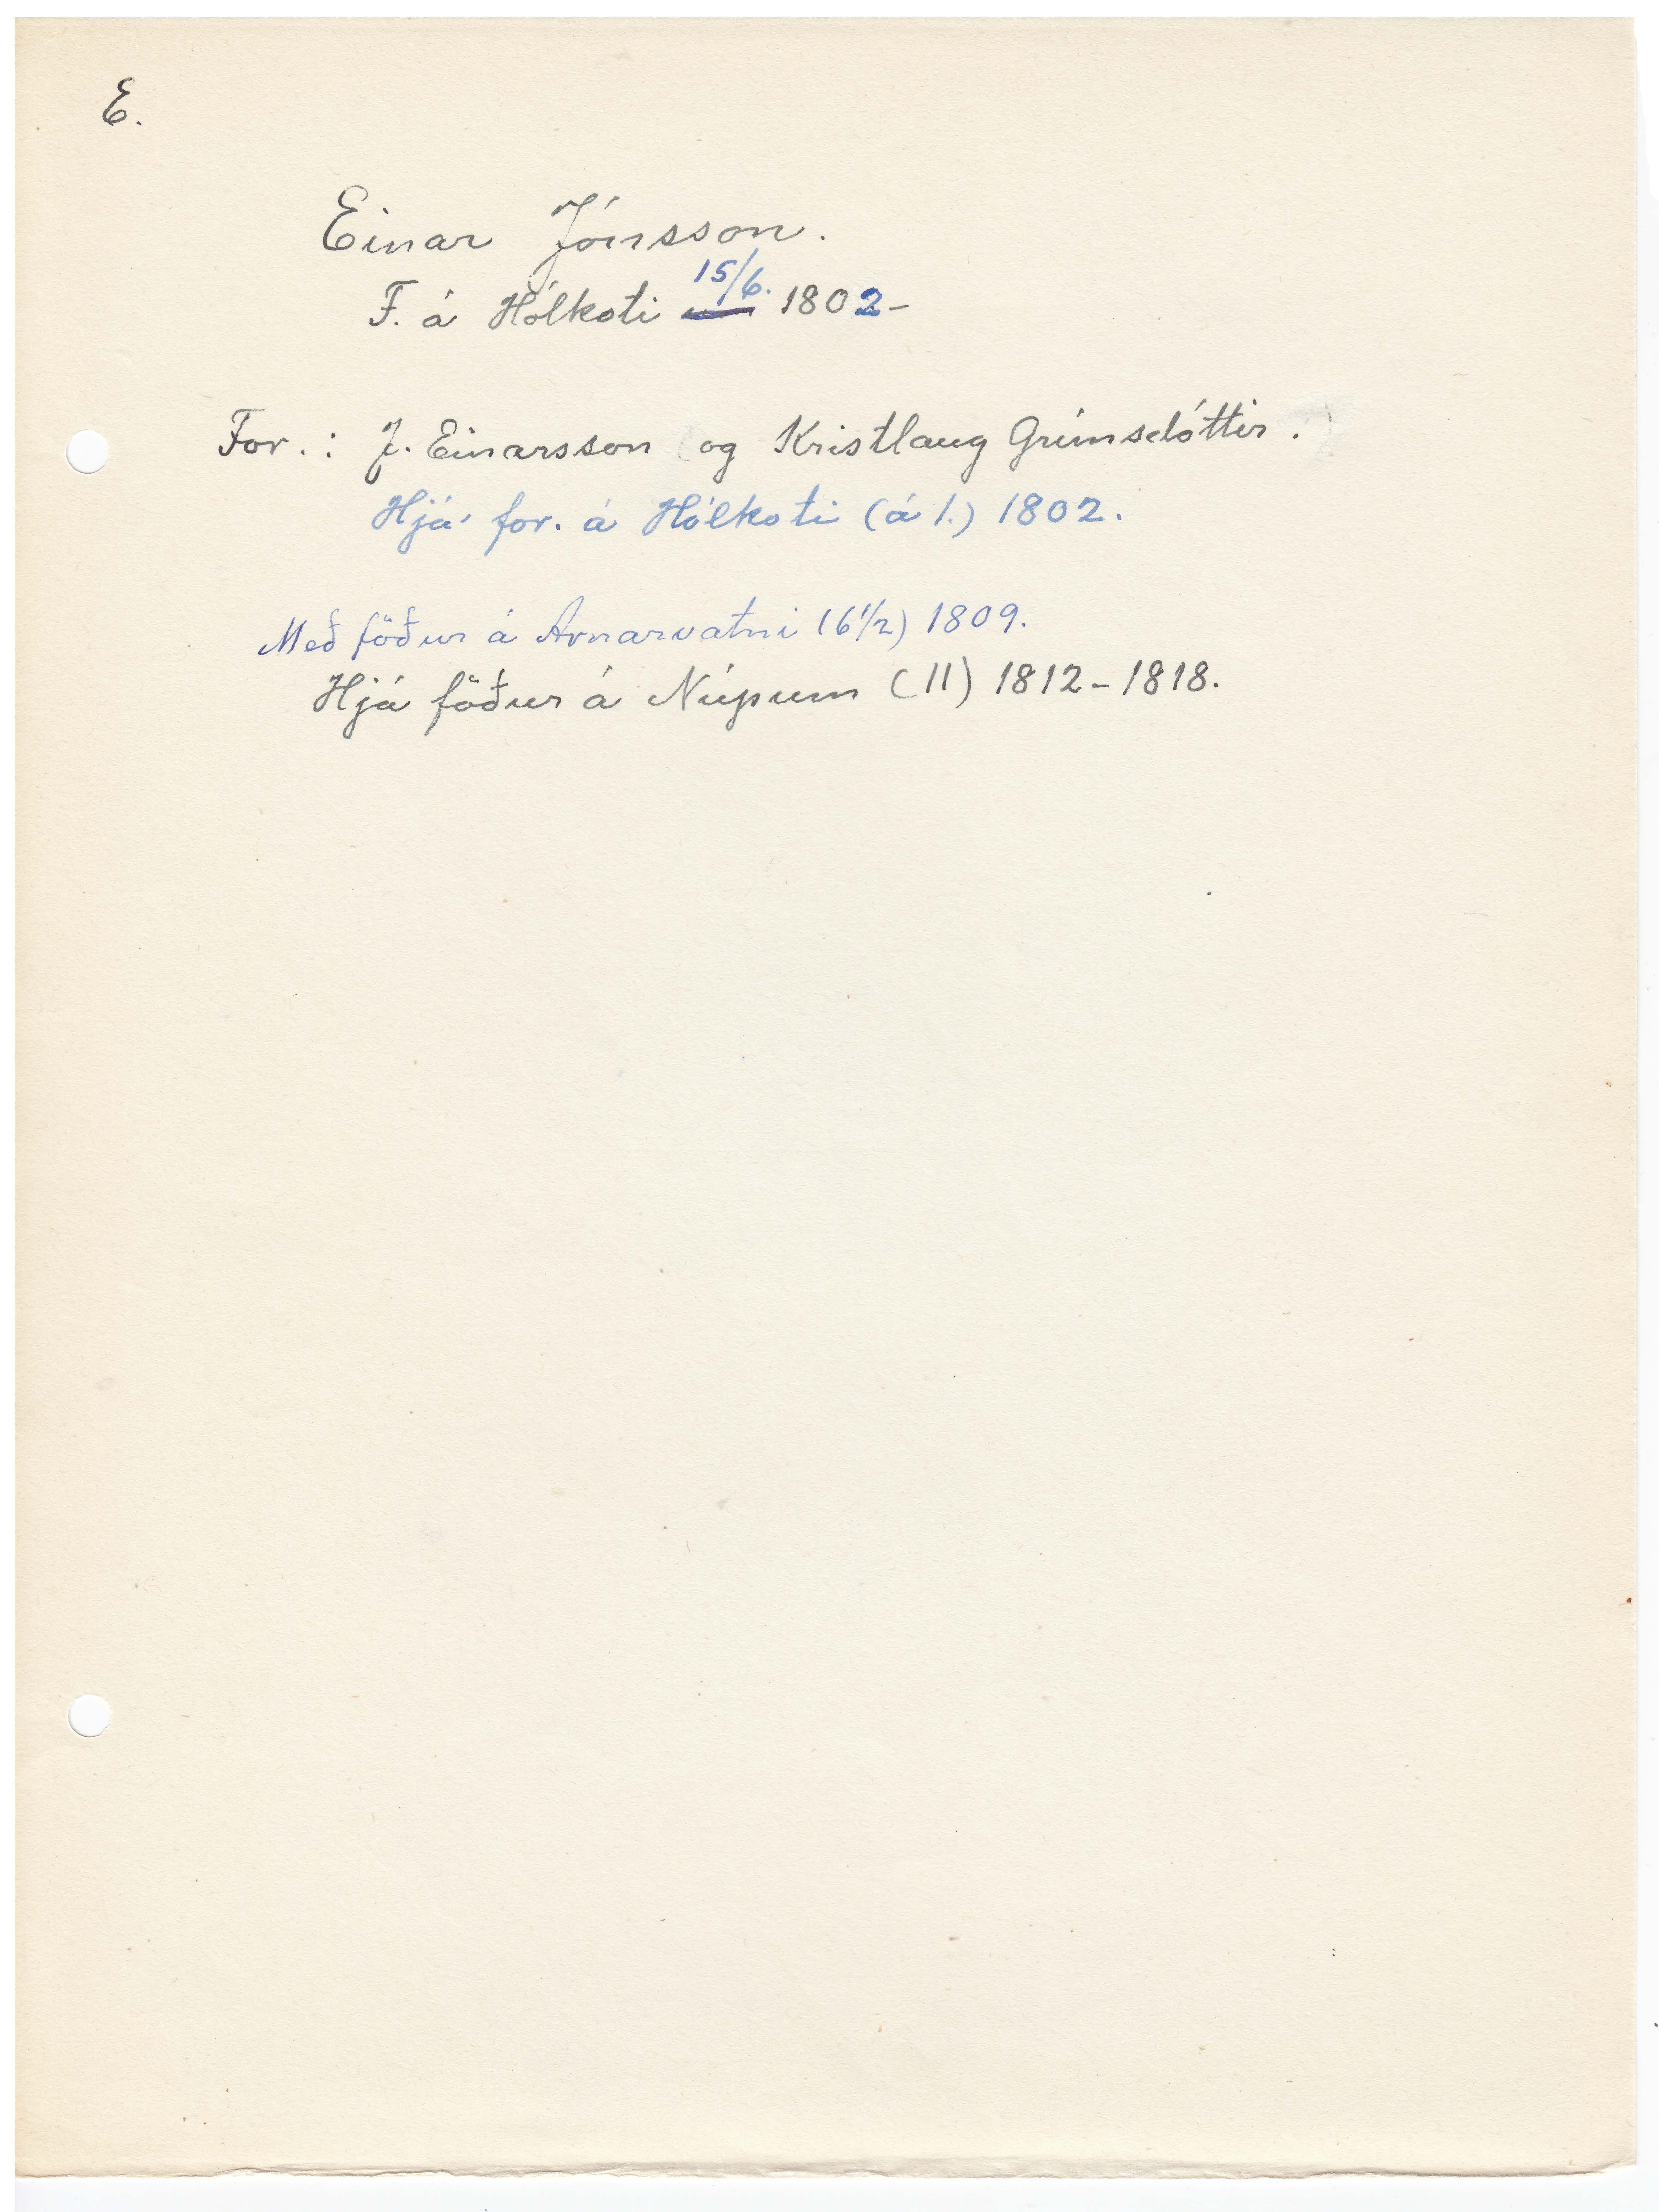 E.
Einar Jónsson.
F. á Hólkoti 15/6. 1802-
For.: J. Einarsson og Kristlaug Grímsdóttir.
Hjá for. á Hólkoti (á 1.) 1802.
Með föður á Arnarvatni (6 1/2) 1809.
Hjá föður á Núpum (11) 1812-1818.